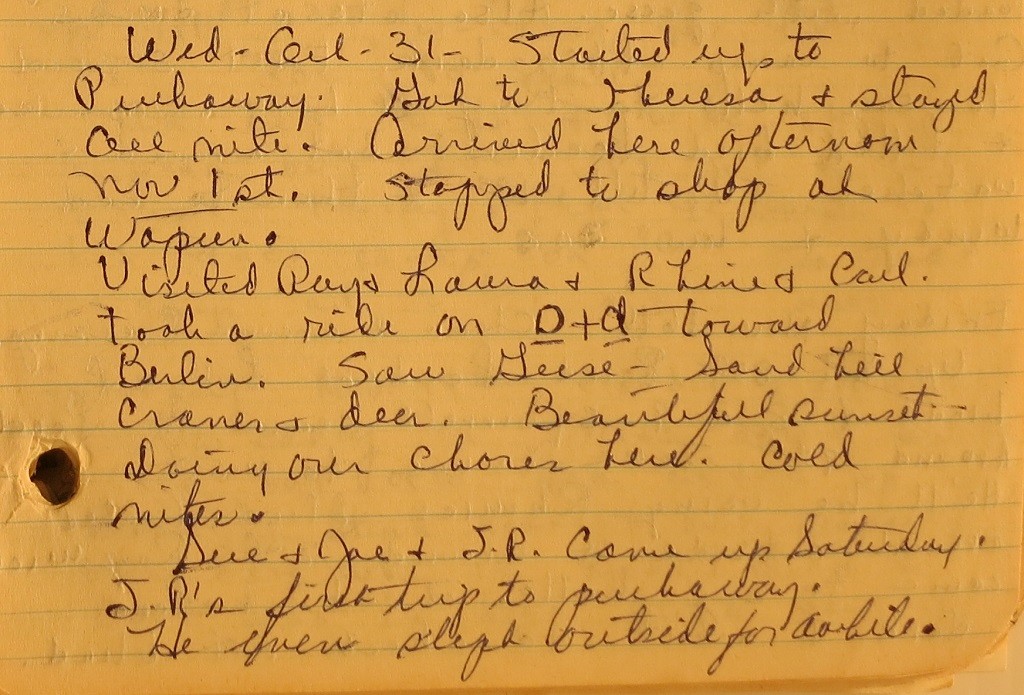 Wed - Oct - 31 - Started up to
Puckaway. Got to Theresa & stayed
all nite. Arrived here afternoon
Nov 1st. Stopped to shop at
Waupun.
Visited Ray & Laura & Rhine & Carl.
took a ride on D + d toward
Berlin. Saw Geese - Sand hill
Cranes & deer. Beautifull sunset -
Doing our chores here. Cold
nites.
Sue & Joe & J.R. Come up Saturday.
J.R's first trip to puckaway.
He even slept outside for awhile.